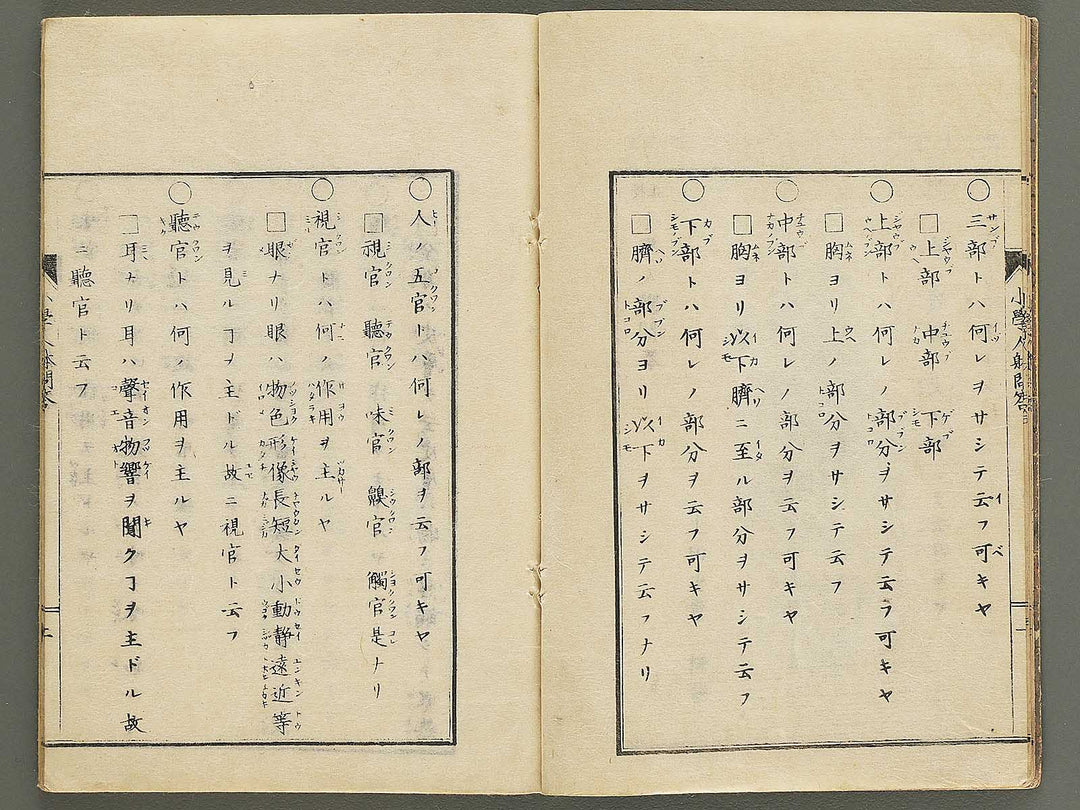 ○三部トハ何レヲサシテ云フ可キヤ
□上部 中部 下部
○上部トハ何レノ部分ヲサシテ云フ可キヤ
□胸ヨリ上ノ部分ヲサシテ云フ
○中部トハ何レノ部分ヲ云フ可キヤ
□胸ヨリ以下臍ニ至ル部分ヲサシテ云フ
○下部トハ何レノ部分ヲ云フ可キヤ
□臍ノ部分ヨリ以下ヲサシテ云フナリ
○人ノ五官トハ何レノ部ヲ云フ可キヤ
□視官 聽官 味官 嗅官 觸官是ナリ
○視官トハ何ノ作用ヲ主ルヤ
□眼ナリ眼ハ物色形像長短大小動静遠近等
ヲ見ルヿヲ主ドル故ニ視官ト云フ
○聽官トハ何ノ作用ヲ主ルヤ
□耳ナリ耳ハ聲音物響ヲ聞クヿヲ主ドル故
ニ聽官ト云フ